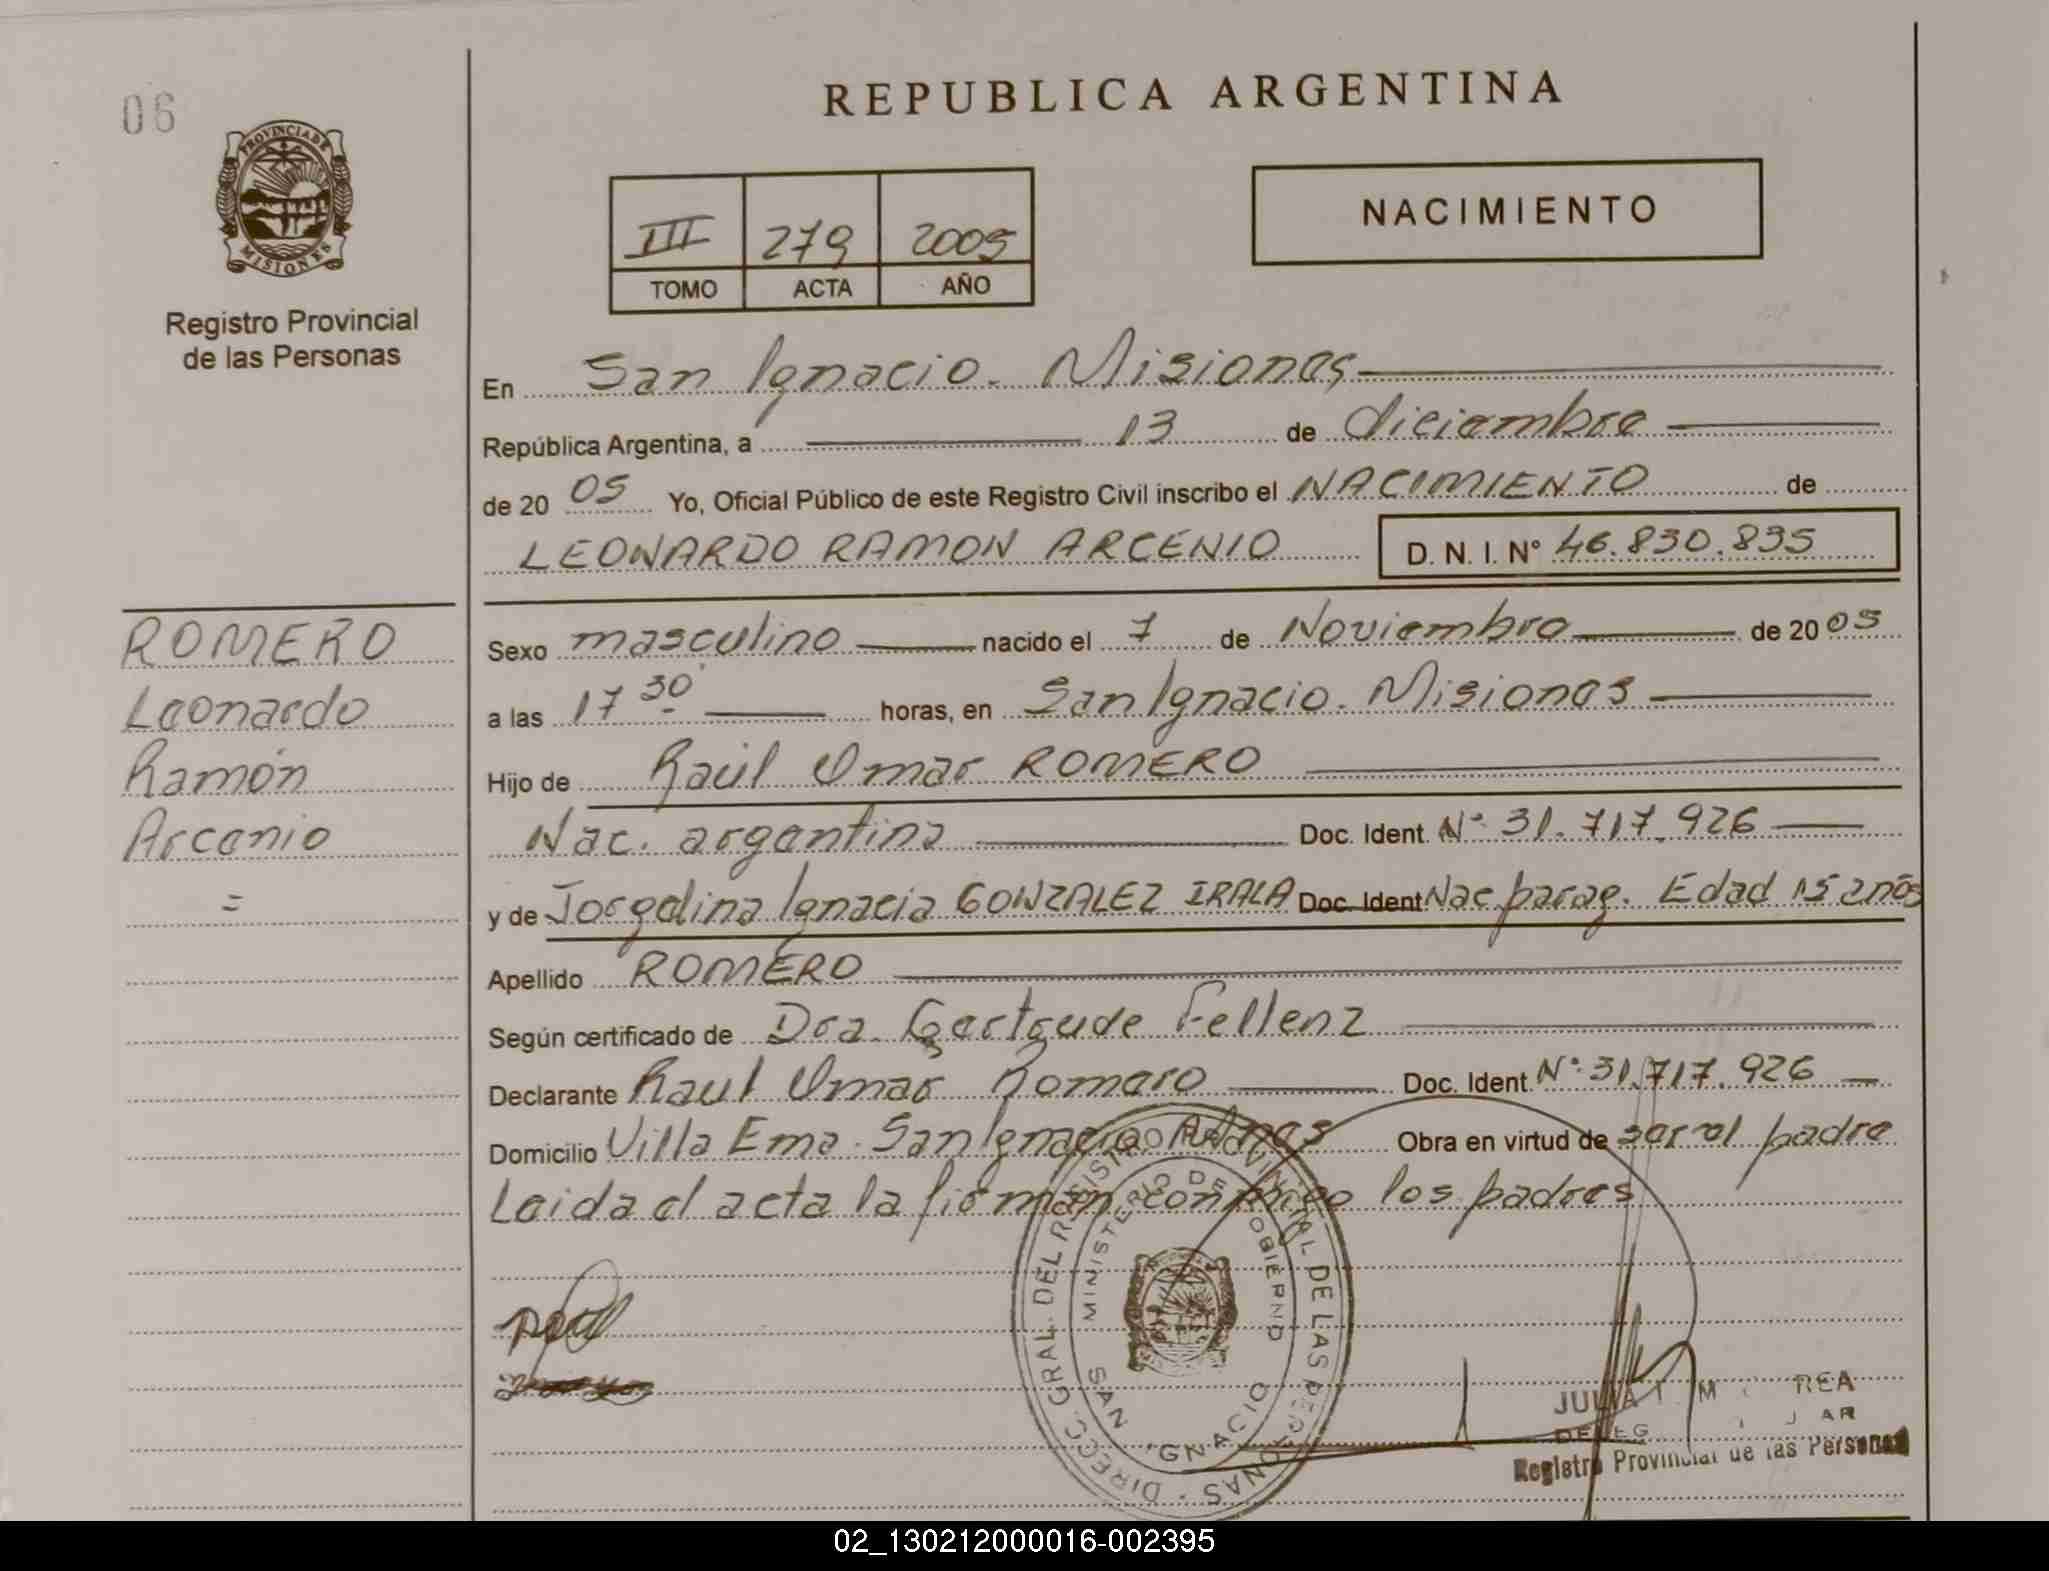 06
REPUBLICA ARGENTINA
PROVINCIA DE MISIONES
Registro Provincial
de las Personas
III 279 2005
TOMO ACTA AÑO
NACIMIENTO
En San Ignacio. Misiones
República Argentina, a 13 de diciembre
de 20 05 Yo, Oficial Público de este Registro Civil inscribo el NACIMIENTO de
LEONARDO RAMON ARCENIO D. N. I. N° 46.830.835
ROMERO
Leonardo
Ramón
Arcenio
=
Sexo masculino nacido el 7 de Noviembre de 20 05
a las 17 30 horas, en San Ignacio. Misiones
Hijo de Raúl Omar ROMERO
Nac. argentina Doc. Ident. N° 31.717.926
y de Jorgelina Ignacia GONZALEZ IRALA Doc. Ident Nac parag. Edad 15 años
Apellido ROMERO
Según certificado de Dra. Gertrude Fellenz
Declarante Raul Omar Romero Doc. Ident. N° 31.717.926
Domicilio Villa Ema. San Ignacio Mnes Obra en virtud de ser el padre
Leida el acta la firman conmigo los padres
DIRECC. GRAL. DEL REGISTRO PROVINCIAL DE LAS PERSONAS
MINISTERIO DE GOBIERNO
SAN IGNACIO
Registro Provincial de las Personas
02_130212000016-002395